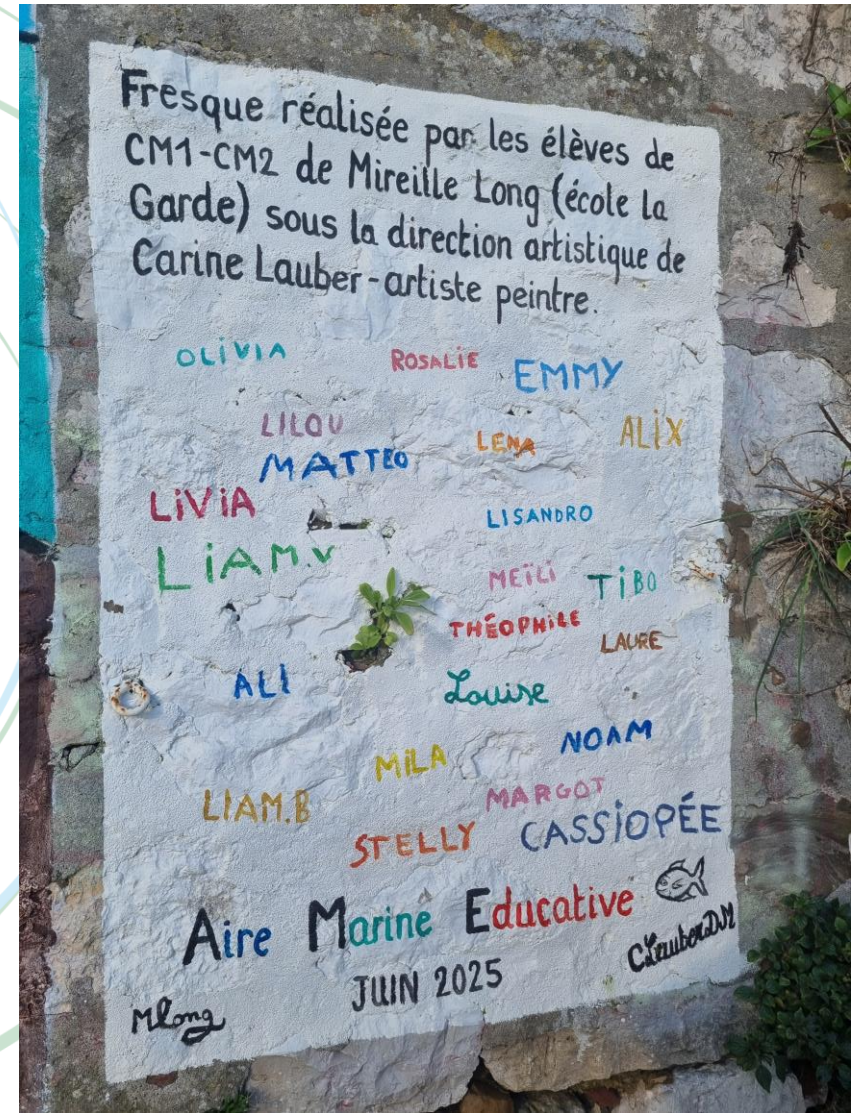 Fresque réalisée par les élèves de
CM1-CM2 de Mireille Long (école la
Garde) sous la direction artistique de
Carine Lauber-artiste peintre.
OLiViA
ROSALiE
EMMY
LILOU
LENA
ALiX
MATTEO
LiViA
LISANDRO
LiAM.V
MEÏLi
TiBO
THÉOPHiLE
LAURE
ALI
Louise
NOAM
MiLA
MARGOT
LIAM.B
CASSiOPÉE
STELLY
Aire Marine Educative
JUIN 2025
C.LauberDM
MLong